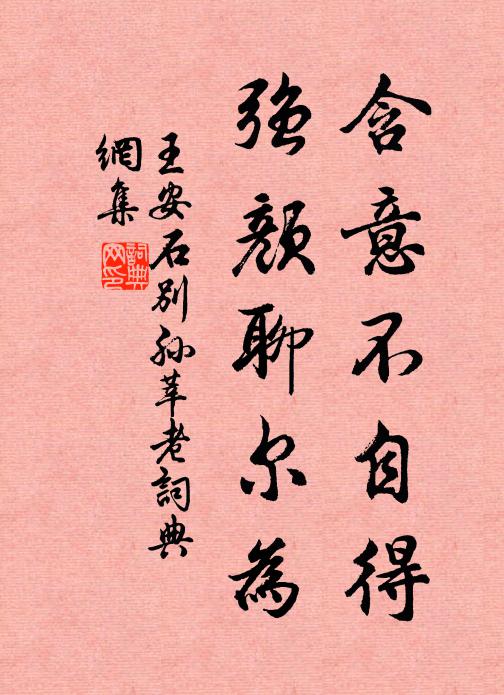 含意不自得
強顏聊尔為
王安石別孫莘老詞典
網集
詞典
网印